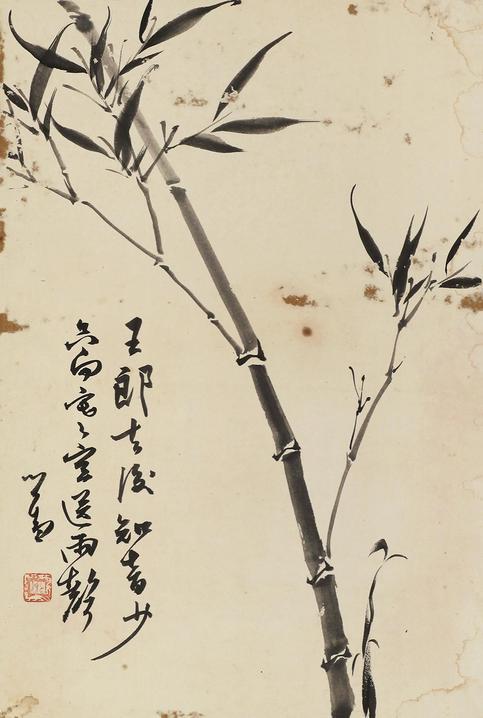 王郎去後知音少
只向寒窗送雨聲
心畬